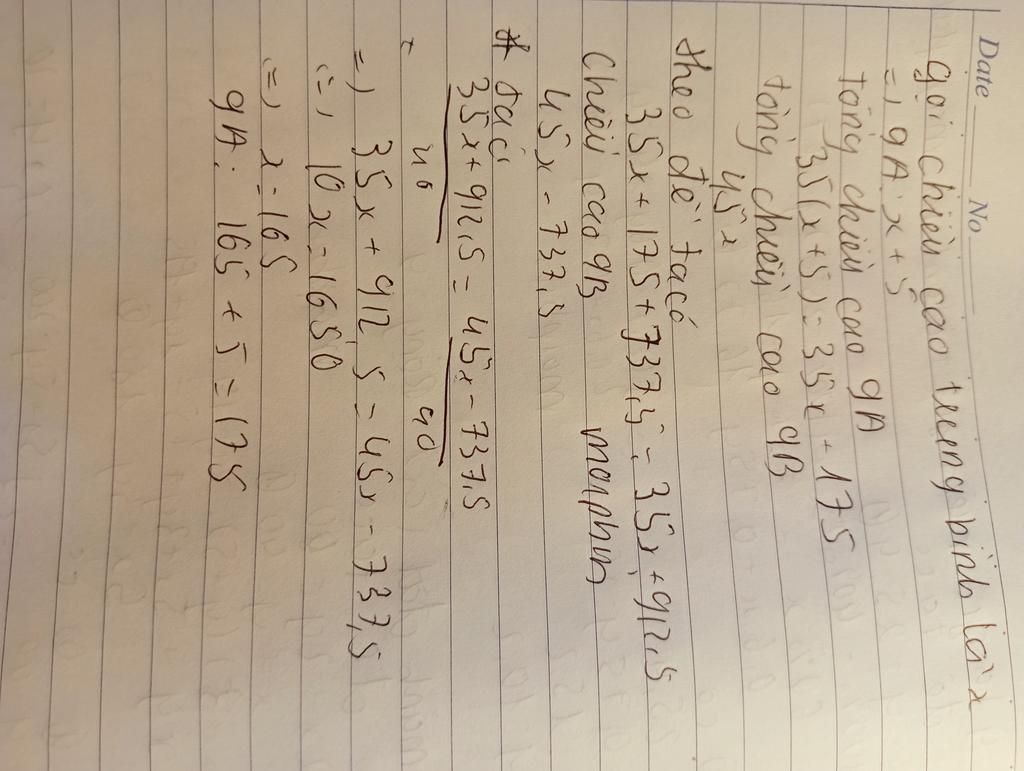 Date No
gọi chiều cao trung bình là x
=> 9A: x + 5
tổng chiều cao 9A
35(x+5) = 35x + 175
tổng chiều cao 9B
45x
theo đề ta có
35x + 175 + 737,5 = 35x + 912,5
chiều cao 9B
45x - 737,5
* ta có
35x + 912,5 = 45x - 737,5
40 40
=> 35x + 912,5 = 45x - 737,5
=> 10x = 1650
=> x = 165
9A: 165 + 5 = 175